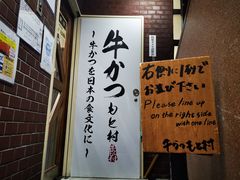 牛かつ もと村
〜牛かつを日本の食文化に〜
右側に1列で
お並び下さい
Please line up
on the right side
with one line
牛かつもと村